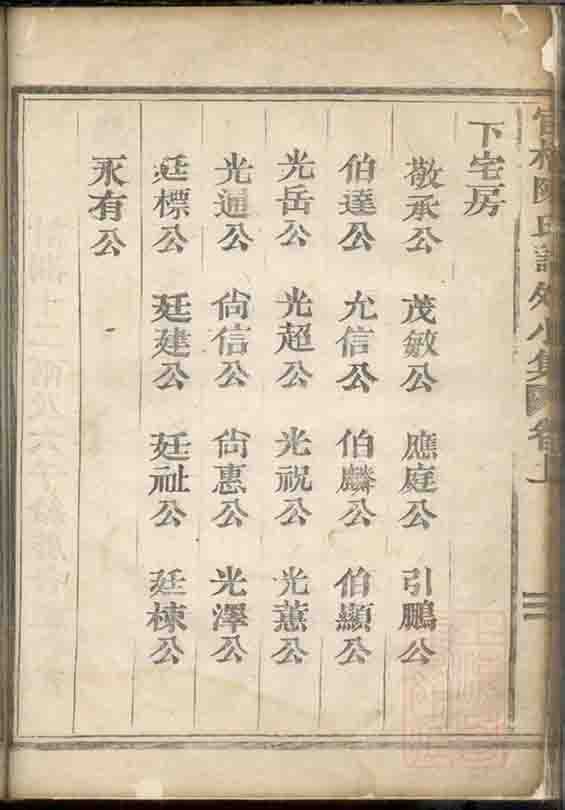 下宅房
敬承公 茂敏公 應庭公 引鵬公
伯達公 允信公 伯麟公 伯顯公
光岳公 光超公 光祝公 光蕙公
光通公 尙信公 尙惠公 光澤公
廷標公 廷建公 廷祉公 廷棟公
永有公